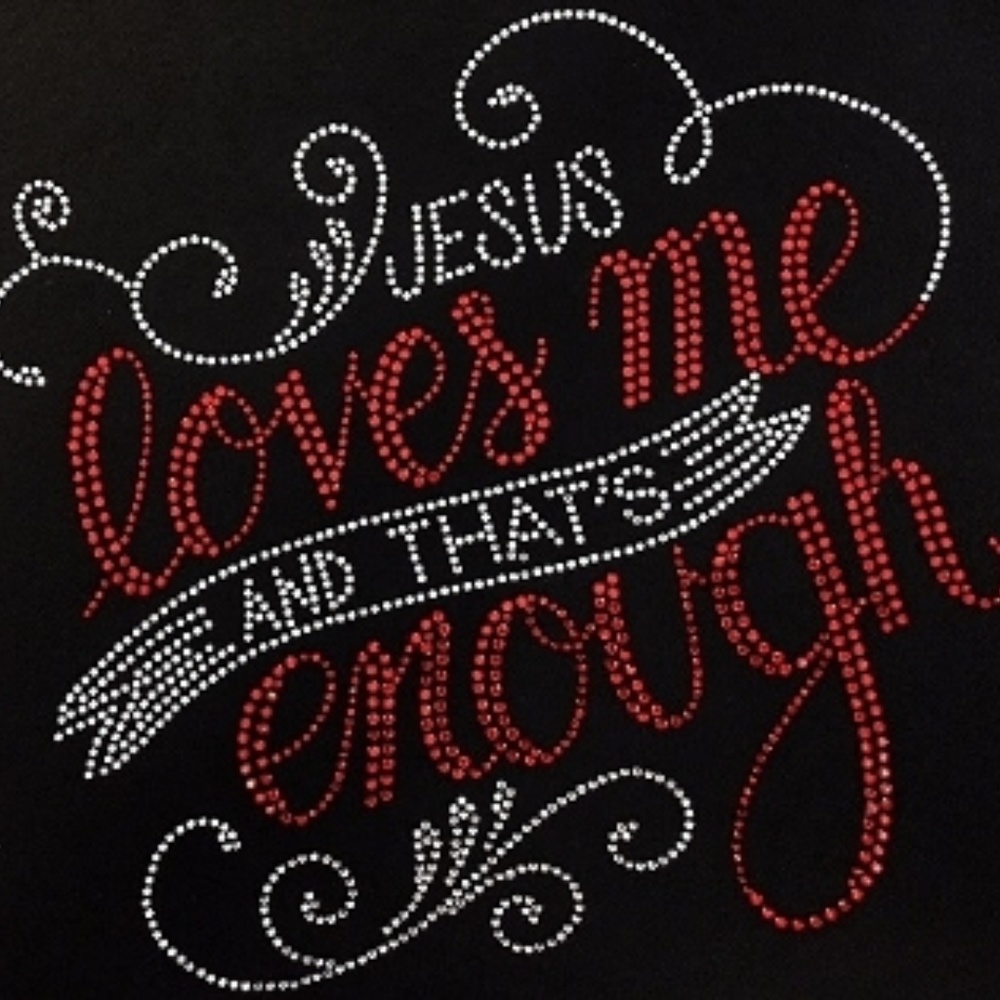 JESUS
loves me
AND THAT'S
enough